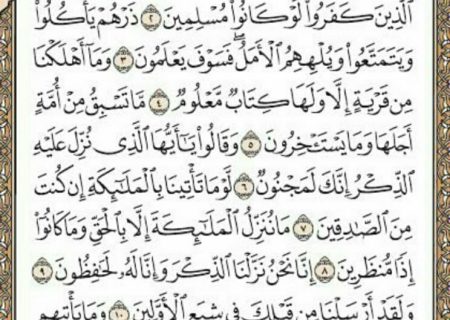 ٱلَّذِينَ كَفَرُوا۟ لَوْ كَانُوا۟ مُسْلِمِينَ ٢ ذَرْهُمْ يَأْكُلُوا۟
وَيَتَمَتَّعُوا۟ وَيُلْهِهِمُ ٱلْأَمَلُ ۖ فَسَوْفَ يَعْلَمُونَ ٣ وَمَآ أَهْلَكْنَا
مِن قَرْيَةٍ إِلَّا وَلَهَا كِتَابٌ مَّعْلُومٌ ٤ مَّا تَسْبِقُ مِنْ أُمَّةٍ
أَجَلَهَا وَمَا يَسْتَـْٔخِرُونَ ٥ وَقَالُوا۟ يَـٰٓأَيُّهَا ٱلَّذِى نُزِّلَ عَلَيْهِ
ٱلذِّكْرُ إِنَّكَ لَمَجْنُونٌ ٦ لَّوْ مَا تَأْتِينَا بِٱلْمَلَـٰٓئِكَةِ إِن كُنتَ
مِنَ ٱلصَّـٰدِقِينَ ٧ مَا نُنَزِّلُ ٱلْمَلَـٰٓئِكَةَ إِلَّا بِٱلْحَقِّ وَمَا كَانُوٓا۟
إِذًا مُّنظَرِينَ ٨ إِنَّا نَحْنُ نَزَّلْنَا ٱلذِّكْرَ وَإِنَّا لَهُۥ لَحَـٰفِظُونَ ٩
وَلَقَدْ أَرْسَلْنَا مِن قَبْلِكَ فِى شِيَعِ ٱلْأَوَّلِينَ ١٠ وَمَا يَأْتِيهِم